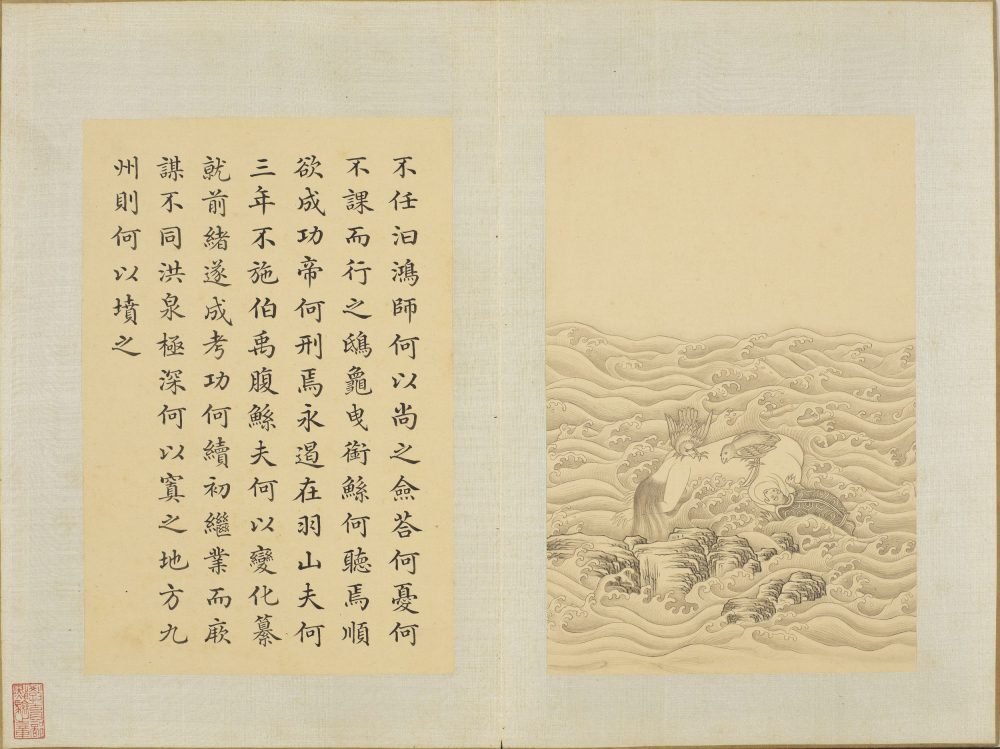 不任汩鴻師何以尚之僉荅何憂何
不課而行之鴟龜曳銜鯀何聽焉順
欲成功帝何刑焉永遏在羽山夫何
三年不施伯禹腹鯀夫何以變化纂
就前緒遂成考功何續初繼業而厥
謀不同洪泉極深何以窴之地方九
州則何以墳之